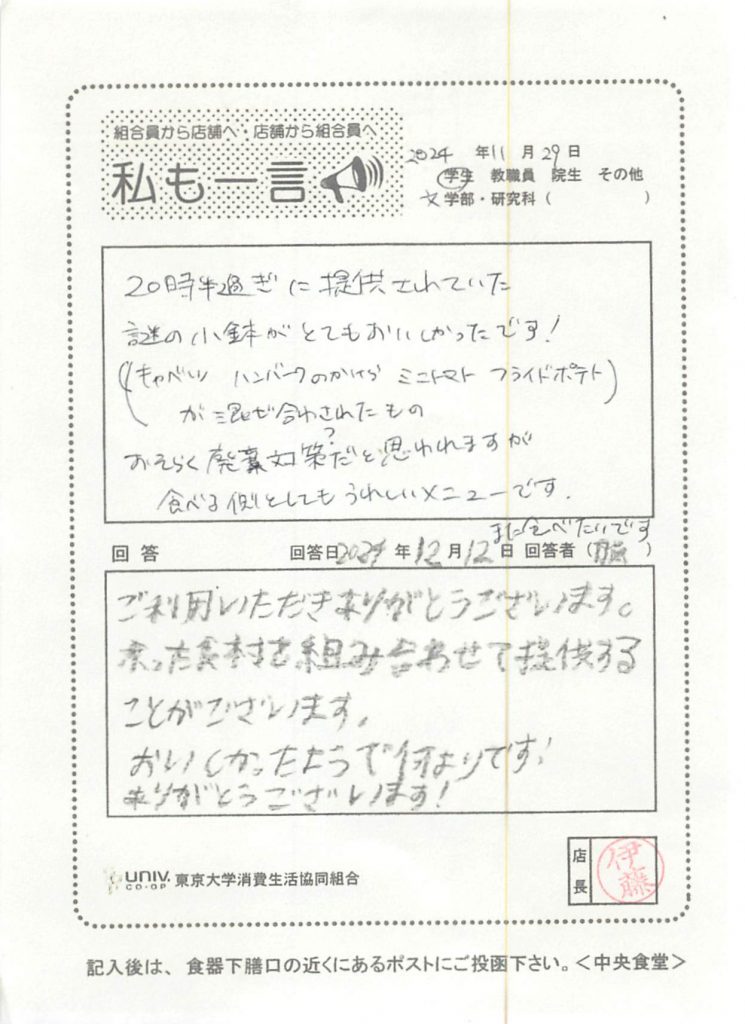 組合員から店舗へ・店舗から組合員へ
私も一言
2024 年 11 月 29 日
学生 教職員 院生 その他
文 学部・研究科 ( )
20時半過ぎに提供されていた
謎の小鉢がとてもおいしかったです!
(キャベツ ハンバーグのかけら ミニトマト フライドポテト)
が混ぜ合わされたもの
?
おそらく廃棄対策だと思われますが
食べる側としてもうれしいメニューです.
また食べたいです
回答 回答日2024 年 12 月 12 日 回答者 ( )
ご利用いただきありがとうございます。
余った食材を組み合わせて提供する
ことがございます。
おいしかったようで何よりです!
ありがとうございます!
UNIV. CO-OP 東京大学消費生活協同組合
店長 伊藤
記入後は、食器下膳口の近くにあるポストにご投函下さい。<中央食堂>